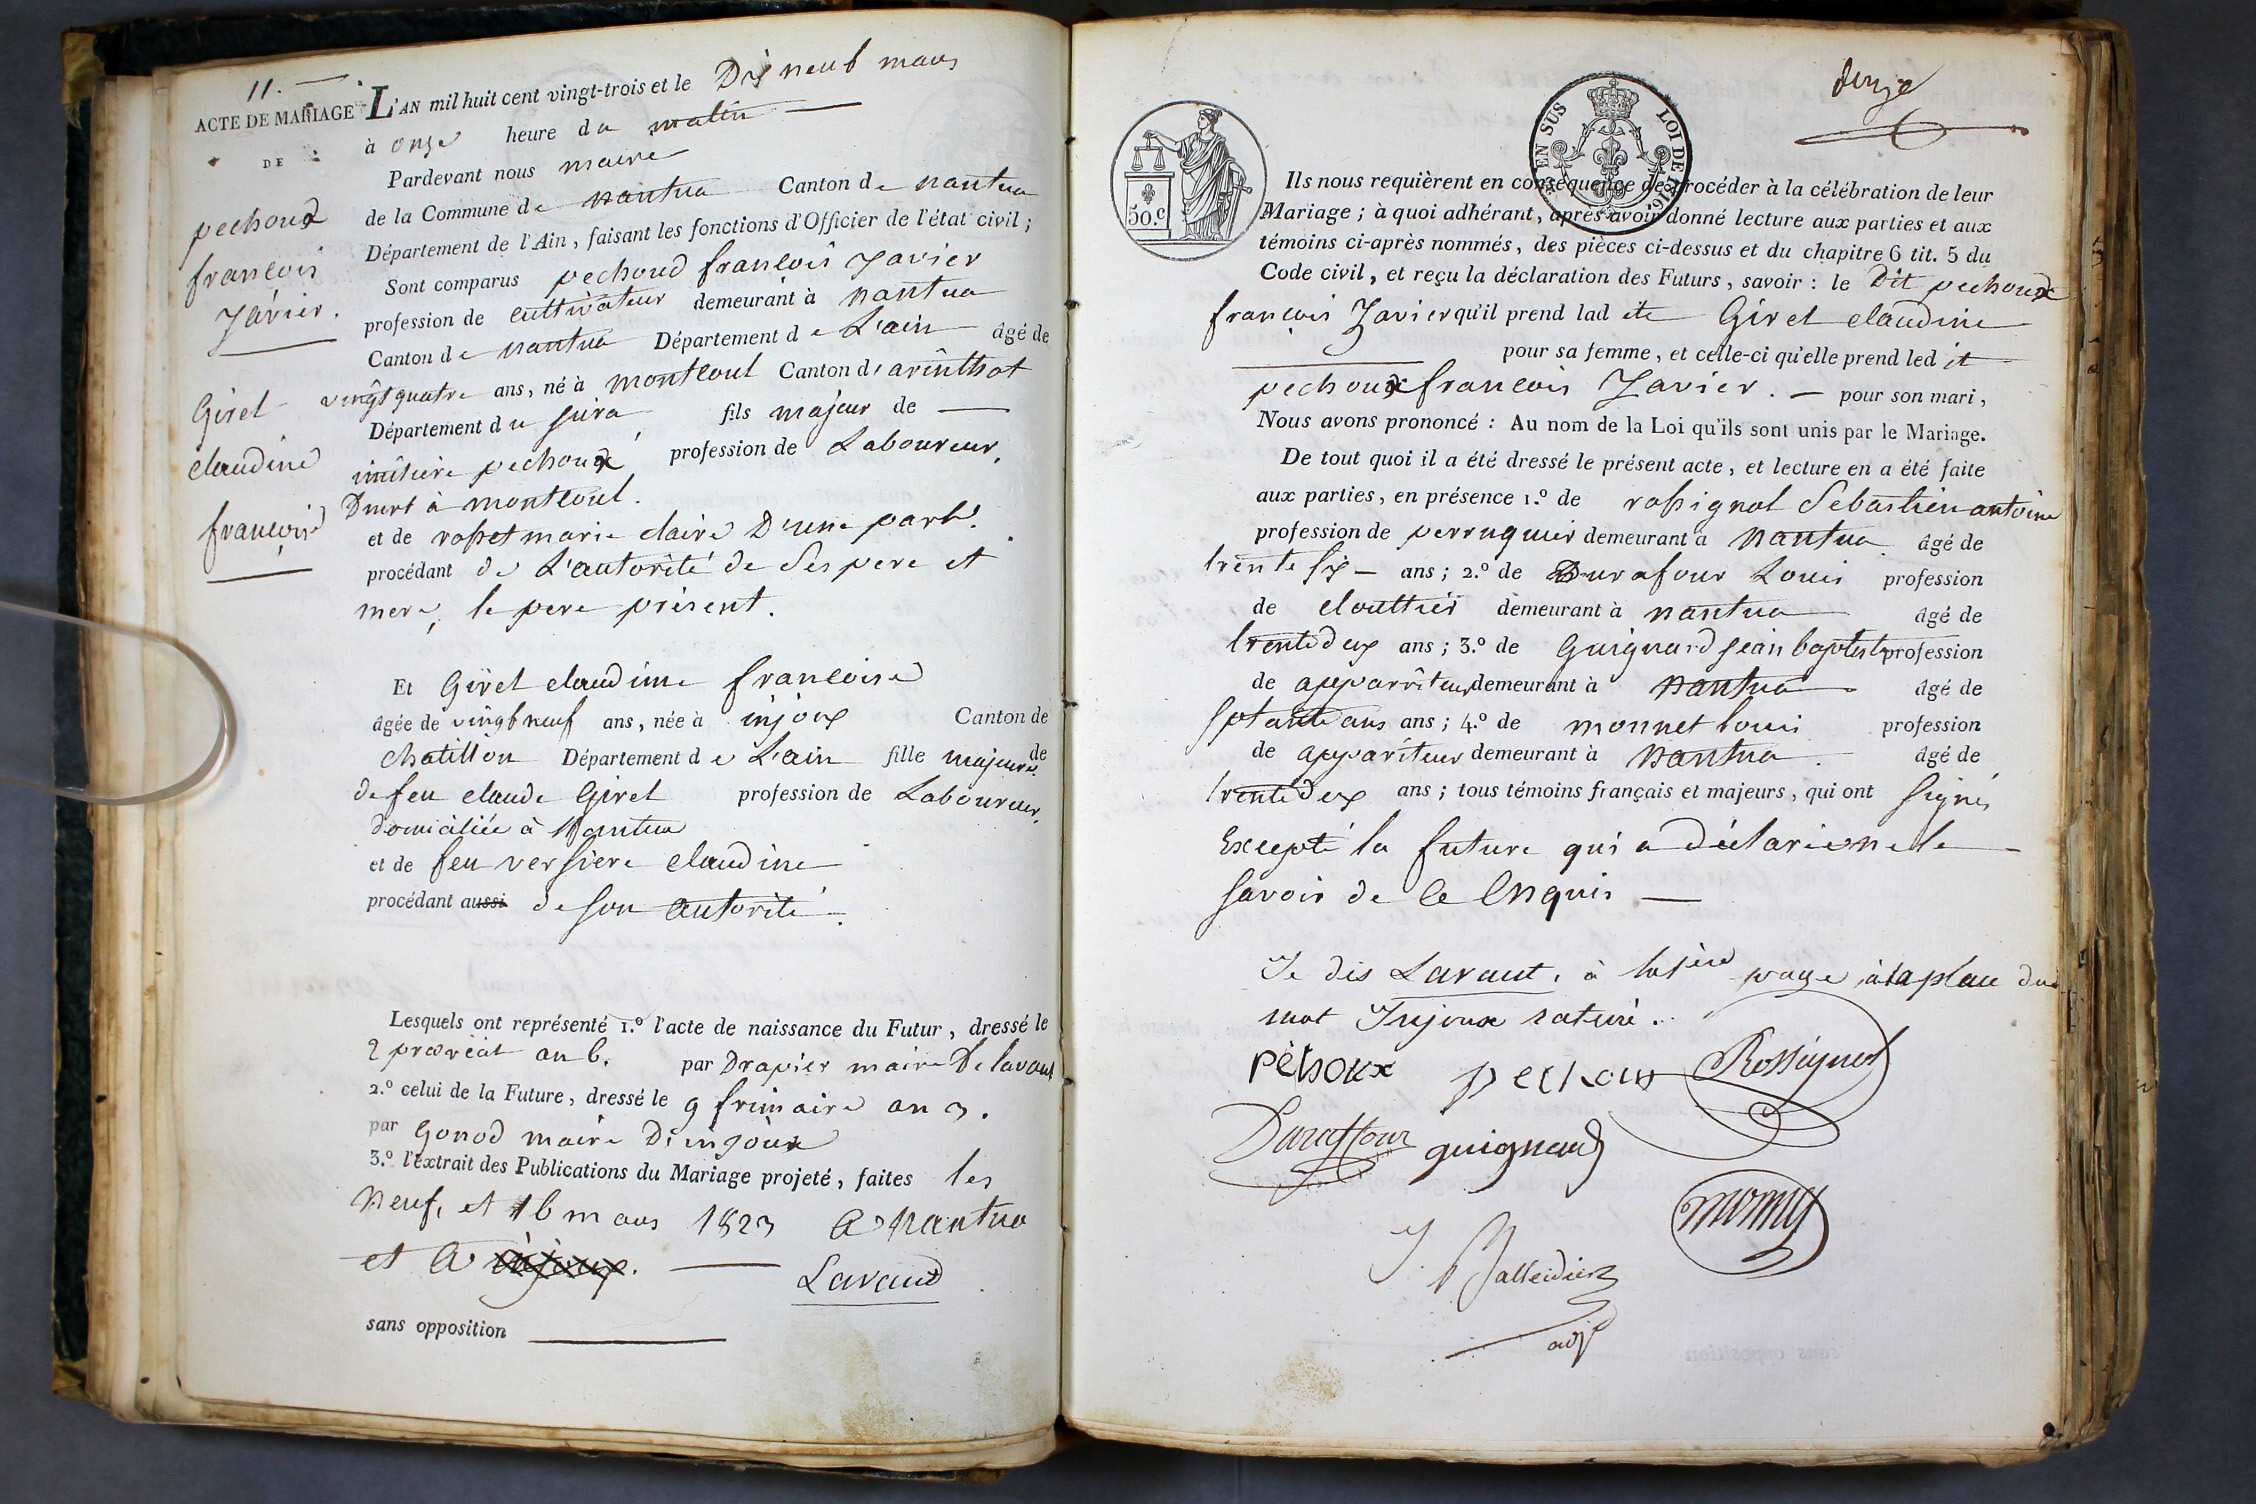 11.
ACTE DE MARIAGE
DE
pechoux
francois
Xavier.
Girel
claudine
francoise
L'AN mil huit cent vingt-trois et le Dix neuf mars
à onze heure du matin
Pardevant nous maire
de la Commune de nantua Canton de nantua
Département de l'Ain, faisant les fonctions d'Officier de l'état civil;
Sont comparus pechoud francois Xavier
profession de cultivateur demeurant à nantua
Canton de nantua Département de L'ain âgé de
vingt quatre ans, né à montcoul Canton d'arinthot
Département du jura fils majeur de
pechoux profession de Laboureur,
Dmrt à montcoul.
et de rosset marie claire D'une part.
procédant de L'autorité de Ses pere et
mere, le pere present.
Et Girel claudine francoise
âgée de vingt neuf ans, née à injoux Canton de
chatillon Département de L'ain fille majeure de
de feu claude Girel profession de Laboureur,
domiciliée à Nantua
et de feu versiere claudine
procédant aussi de son autorité.
Lesquels ont représenté 1.º l'acte de naissance du Futur, dressé le
2 prereal an 6. par Drapier maire De lavans
2.º celui de la Future, dressé le 9 frimaire an 3.
par Gonod maire D'injoux
3.º l'extrait des Publications du Mariage projeté, faites les
Neuf, et 16 mars 1823 a Nantua
et a injoux.
Lavand
sans opposition
douze
EN SUS
LOI DE 1816
50.c
Ils nous requièrent en conséquence de procéder à la célébration de leur
Mariage; à quoi adhérant, après avoir donné lecture aux parties et aux
témoins ci-après nommés, des pièces ci-dessus et du chapitre 6 tit. 5 du
Code civil, et reçu la déclaration des Futurs, savoir: le Dit pechoux
françois Xavier qu'il prend ladite Girel claudine
pour sa femme, et celle-ci qu'elle prend ledit
pechoux francois Xavier. pour son mari,
Nous avons prononcé: Au nom de la Loi qu'ils sont unis par le Mariage.
De tout quoi il a été dressé le présent acte, et lecture en a été faite
aux parties, en présence 1.º de rossignol Sebastien antoine
profession de perruquier demeurant à Nantua âgé de
trente six ans; 2.º de Durafour Louis profession
de clouttier demeurant à nantua âgé de
trente deux ans; 3.º de Guignard jean baptiste profession
de apparriteur demeurant à nantua âgé de
septante ans ans; 4.º de monnet louis profession
de appariteur demeurant à Nantua. âgé de
trente deux ans; tous témoins français et majeurs, qui ont signés
Excepté la future qui a déclaré ne le
savoir de ce Enquis
Je dis Lavant, à la 1ère page, à la place du
mot Injoux raturé.
Pèhoux pechoux Rossignol
Duraffour guignard
monnet
J. Balleidier
adj